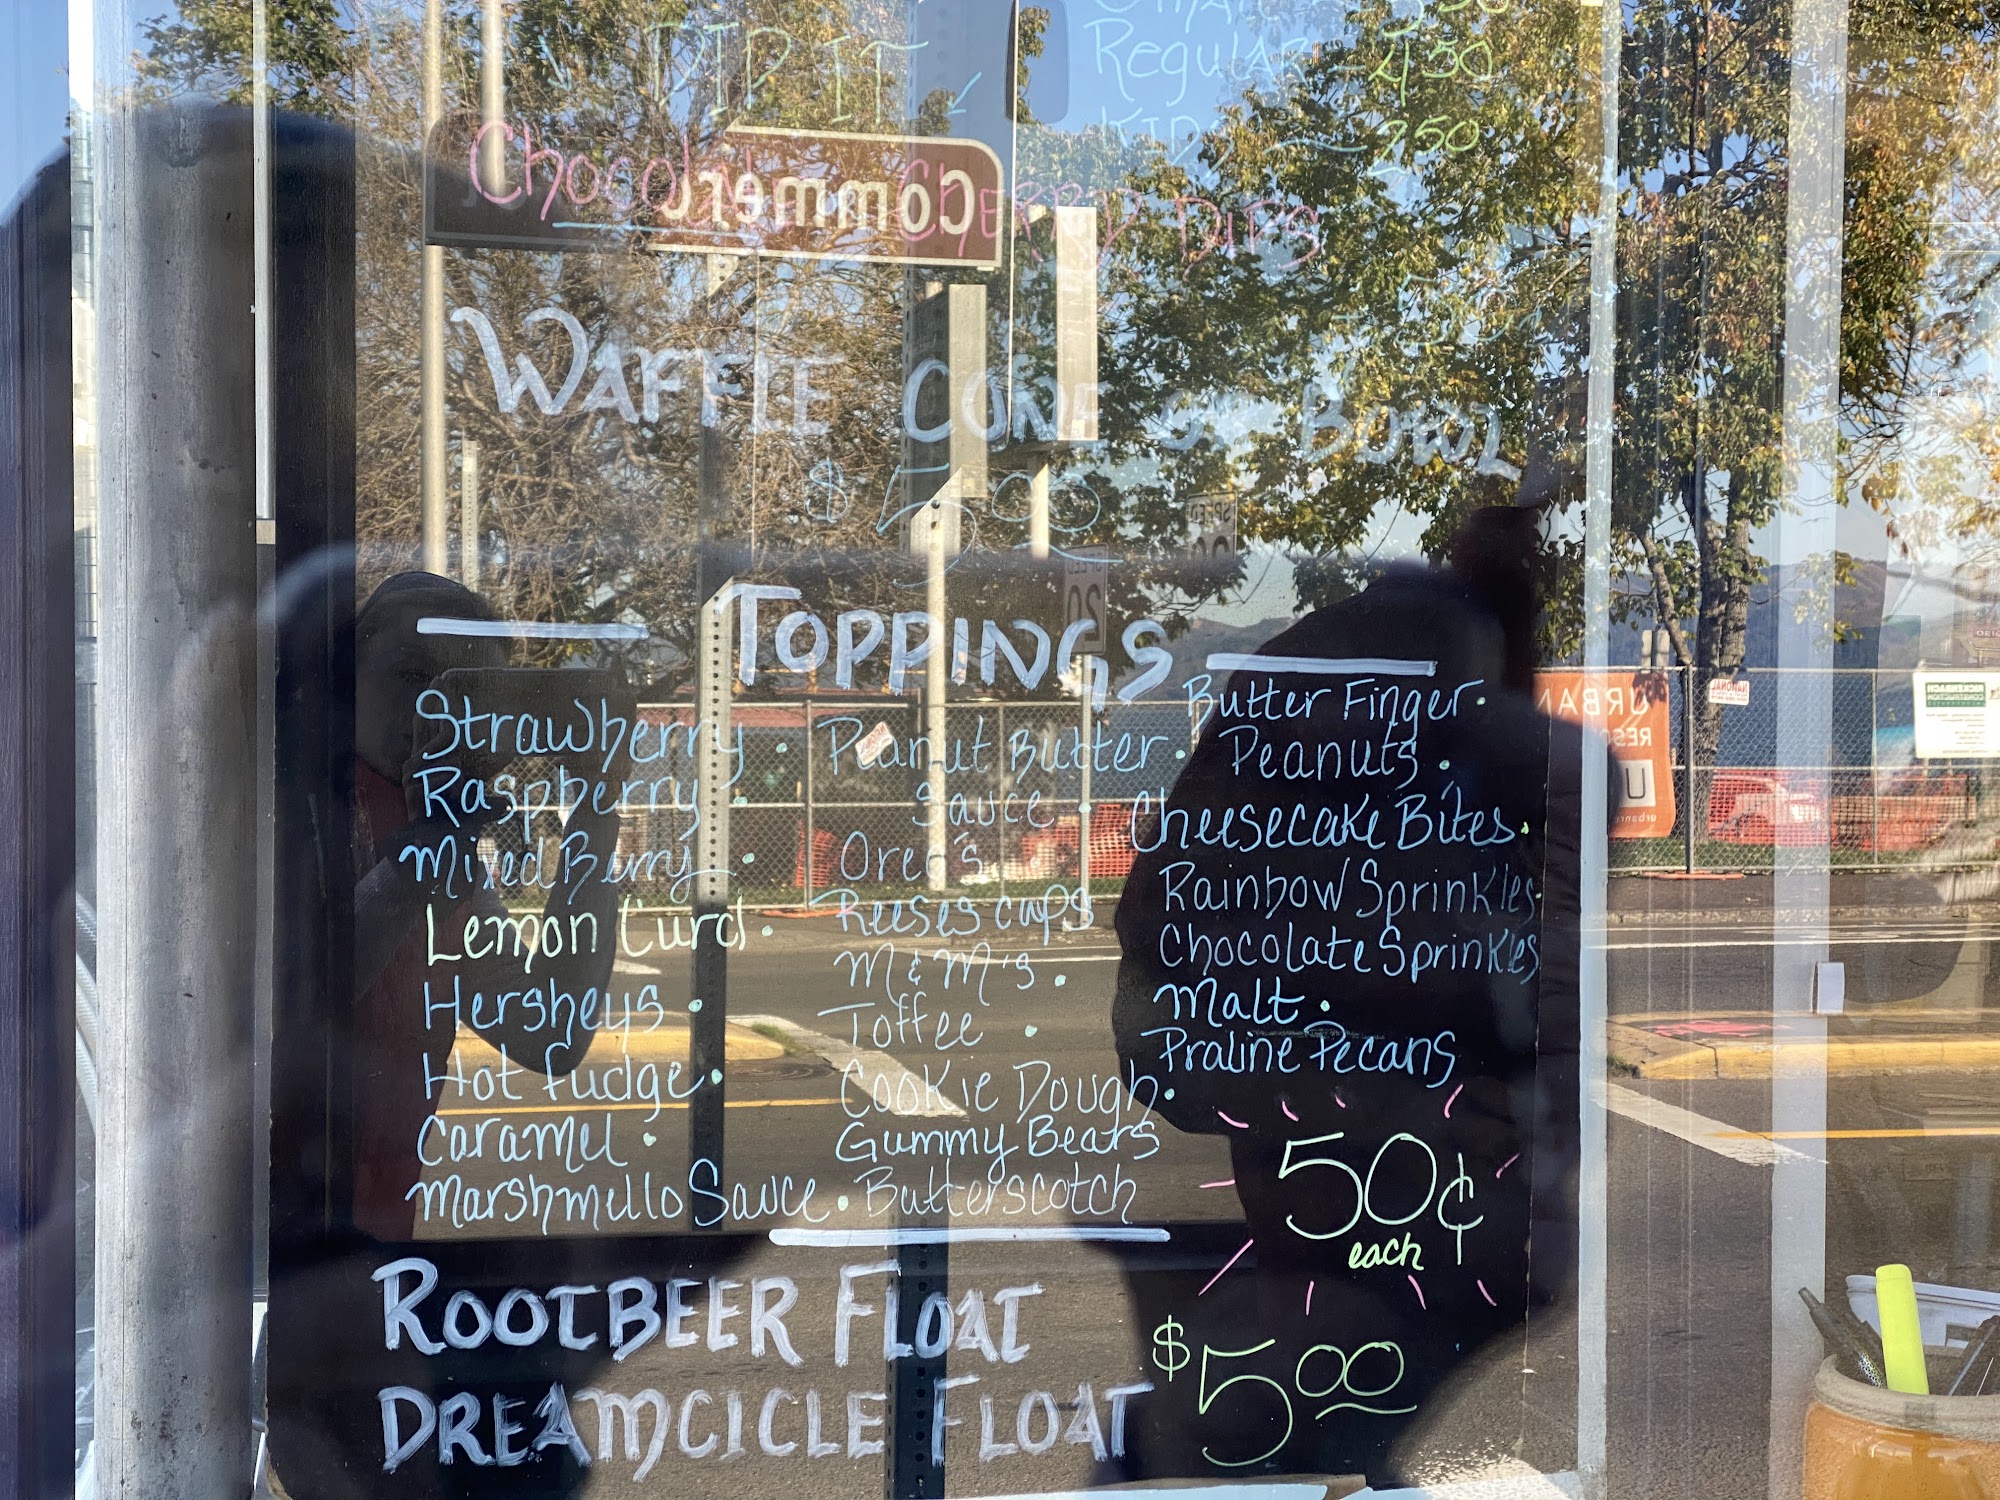 DIP IT
Regular - 4.50
KIDS - 2.50
Chocolate & CHERRY DIPS
.50
Commerc
WAFFLE CONE or BOWL
$5.00
SPEED
20
TOPPINGS
Strawberry ·
Raspberry ·
Mixed Berry ·
Lemon Curd ·
Hersheys ·
Hot fudge ·
Caramel ·
Marshmello Sauce ·
Peanut Butter ·
Sauce ·
Oreo's
Reeses cups
M & M's ·
Toffee ·
Cookie Dough ·
Gummy Bears
Butterscotch
Butter Finger ·
Peanuts ·
Cheesecake Bites ·
Rainbow Sprinkles ·
Chocolate Sprinkles
Malt ·
Praline Pecans
50¢
each
ROOTBEER FLOAT
DREAMCICLE FLOAT
$5.00
URBAN
RES
U